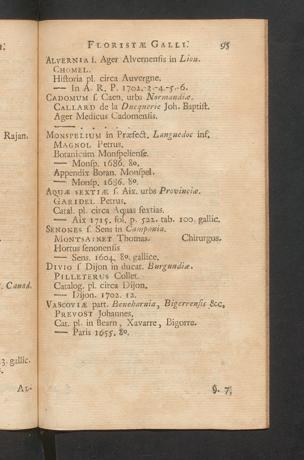 FLORISTÆ GALLI. 95
ALVERNIA s. Ager Alvernensis in Lion.
CHOMEL.
Historia pl. circa Auvergne.
— In A. R. P. 1702.-3.-4.-5.-6.
CADOMUM s. Caen, urbs Normandiæ.
CALLARD de la Ducquerie Joh. Baptist.
Ager Medicus Cadomensis.
— . . . . . .
MONSPELIUM in Præfect. Languedoc inf.
MAGNOL Petrus.
Botanicum Monspeliense.
— Monsp. 1686. 8o.
Appendix Botan. Monspel.
— Monsp. 1686. 8o.
AQUÆ SEXTIÆ s. Aix. urbs Provinciæ.
GARIDEL Petrus.
Catal. pl. circa Aquas sextias.
— Aix 1715. fol. p. 522. tab. 100. gallic.
SENONES s. Sens in Campania.
MONTSAINET Thomas. Chirurgus.
Hortus senonensis
— Sens. 1604. 8o. gallice.
DIVIO s Dijon in ducat. Burgundiæ.
PILLETERUS Collet.
Catalog. pl. circa Dijon.
— Dijon. 1702. 12.
VASCOVIÆ part. Beneharnia, Bigerrensis &c.
PREVOST Johannes,
Cat. pl. in Bearn, Xavarre, Bigorra.
— Paris 1655. 8o.
§. 7.
Rajan.
Canad.
3. gallic.
Ar-